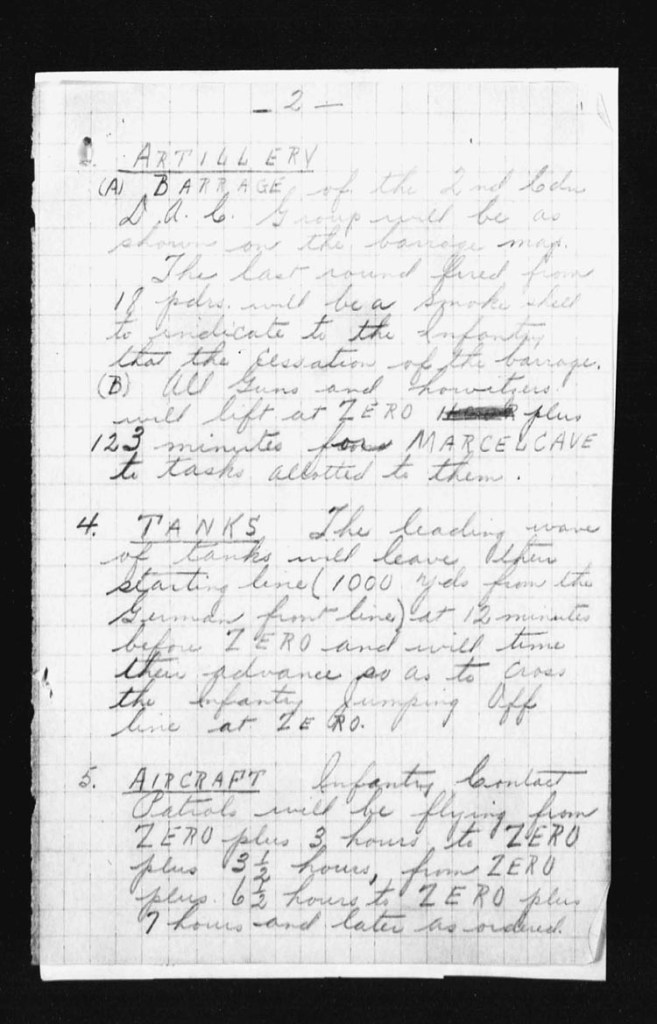 - 2 -
ARTILLERY
(A) BARRAGE of the 2nd Cdn
D. A. C. Group will be as
shown on the barrage map.
The last round fired from
18 pdrs. will be a smoke shell
to indicate to the Infantry
that the cessation of the barrage.
(B) All Guns and howitzers
will lift at ZERO plus
123 minutes from MARCELCAVE
to tasks allotted to them.
4. TANKS The leading wave
of tanks will leave their
starting line (1000 yds from the
German front line) at 12 minutes
before ZERO and will time
their advance so as to cross
the Infantry Jumping Off
line at ZERO.
5. AIRCRAFT Infantry Contact
Patrols will be flying from
ZERO plus 3 hours to ZERO
plus 3½ hours, from ZERO
plus 6½ hours to ZERO plus
7 hours and later as ordered.